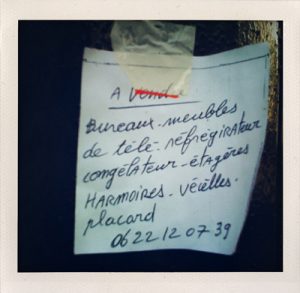 A Vendre
Bureaux - meubles
de télé - réfrégirateur
congélateur - étagères
HARMOIRES - Véielles -
placard
06 22 12 07 39